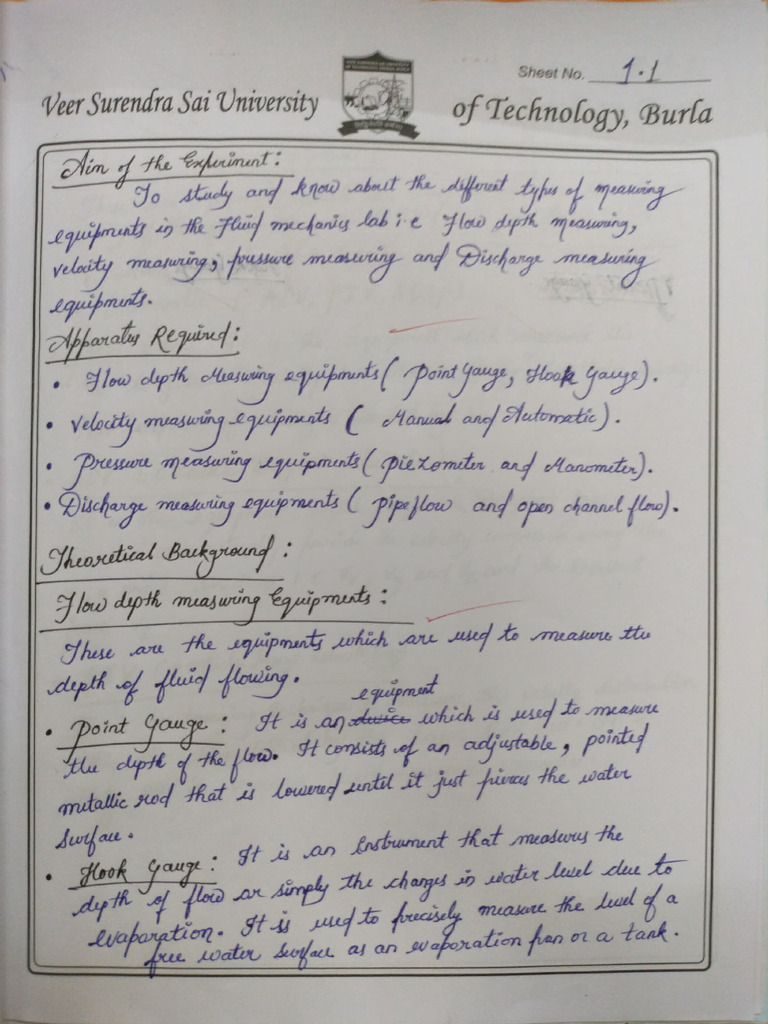 Sheet No. 1.1
Veer Surendra Sai University of Technology, Burla
Aim of the Experiment:
To study and know about the different types of measuring
equipments in the Fluid mechanics lab i.e Flow depth measuring,
velocity measuring, pressure measuring and Discharge measuring
equipments.
Apparatus Required:
• Flow depth Measuring equipments ( Point Gauge, Hook Gauge).
• Velocity measuring equipments ( Manual and Automatic).
• Pressure measuring equipments ( Piezometer and Manometer).
• Discharge measuring equipments ( pipeflow and open channel flow).
Theoretical Background:
Flow depth measuring Equipments:
These are the equipments which are used to measure the
depth of fluid flowing.
equipment
• Point Gauge: It is an device which is used to measure
the depth of the flow. It consists of an adjustable, pointed
metallic rod that is lowered until it just pierces the water
surface.
• Hook Gauge: It is an Instrument that measures the
depth of flow or simply the changes in water level due to
evaporation. It is used to precisely measure the level of a
free water surface as an evaporation pan or a tank.